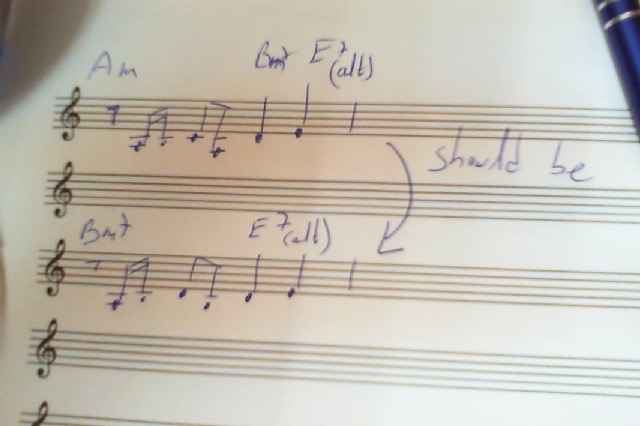 Am Bm7 E7(alt)
should be
Bm7 E7(alt)